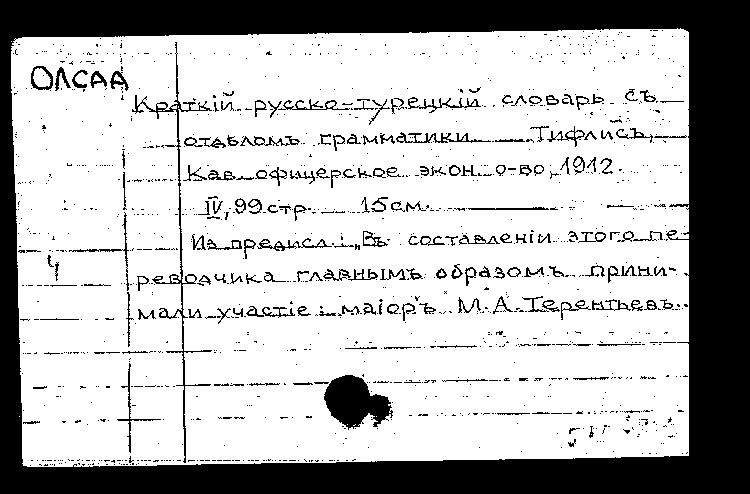 ОЛСАА
Краткій русско-турецкій словарь съ
отдѣломъ грамматики Тифлисъ,
Кав. офицерское экон. о-во, 1912.
IV, 99 стр. 15 см.
Из предисл.: „Въ составленіи этого пе-
4
реводчика главнымъ образомъ прини-
мали участіе: маіоръ М.А.Терентьевъ..